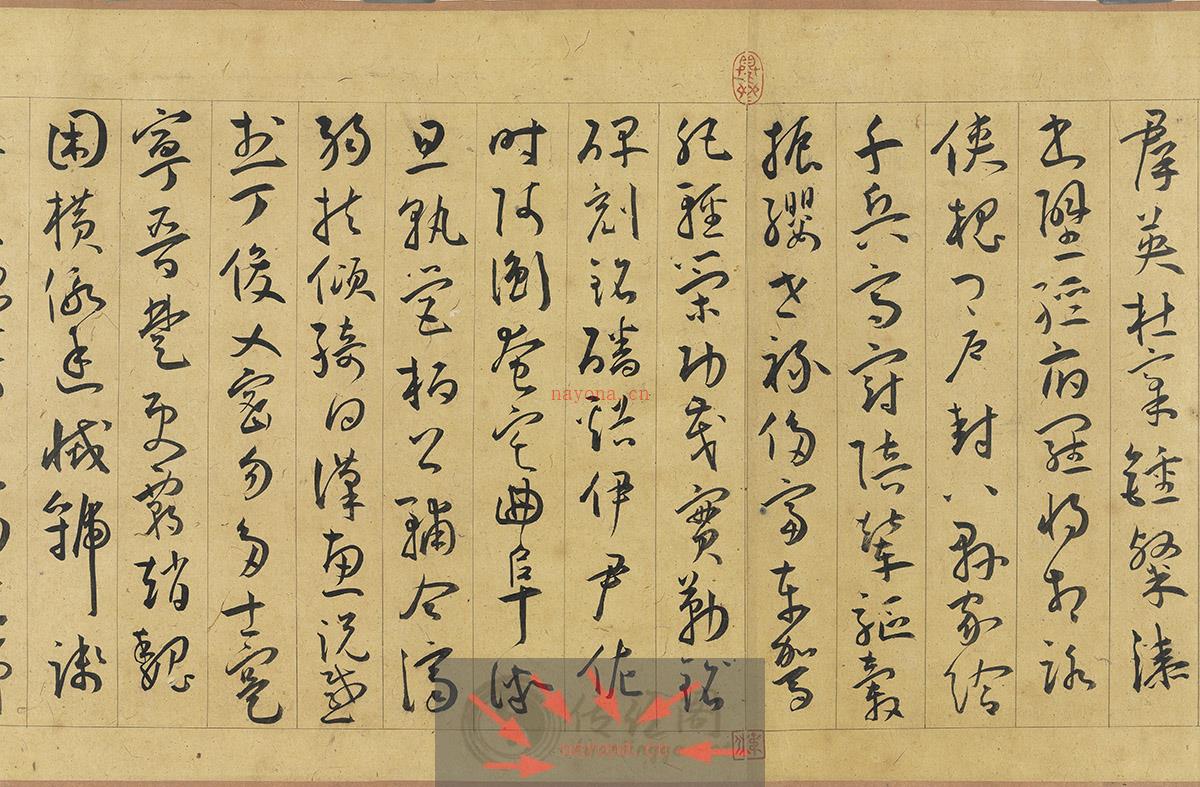 群英杜稾鍾隸漆
書壁經府羅將相路
俠槐卿戶封八縣家給
千兵高冠陪輦驅轂
振纓世祿侈富車駕
肥輕策功茂實勒銘
碑刻銘磻溪伊尹佐
時阿衡奄宅曲阜微
旦孰營桓公輔合濟
弱扶傾綺回漢惠說感
武丁俊乂密勿多士寔
寧晉楚更霸趙魏
困橫假途滅虢踐
nayona.cn